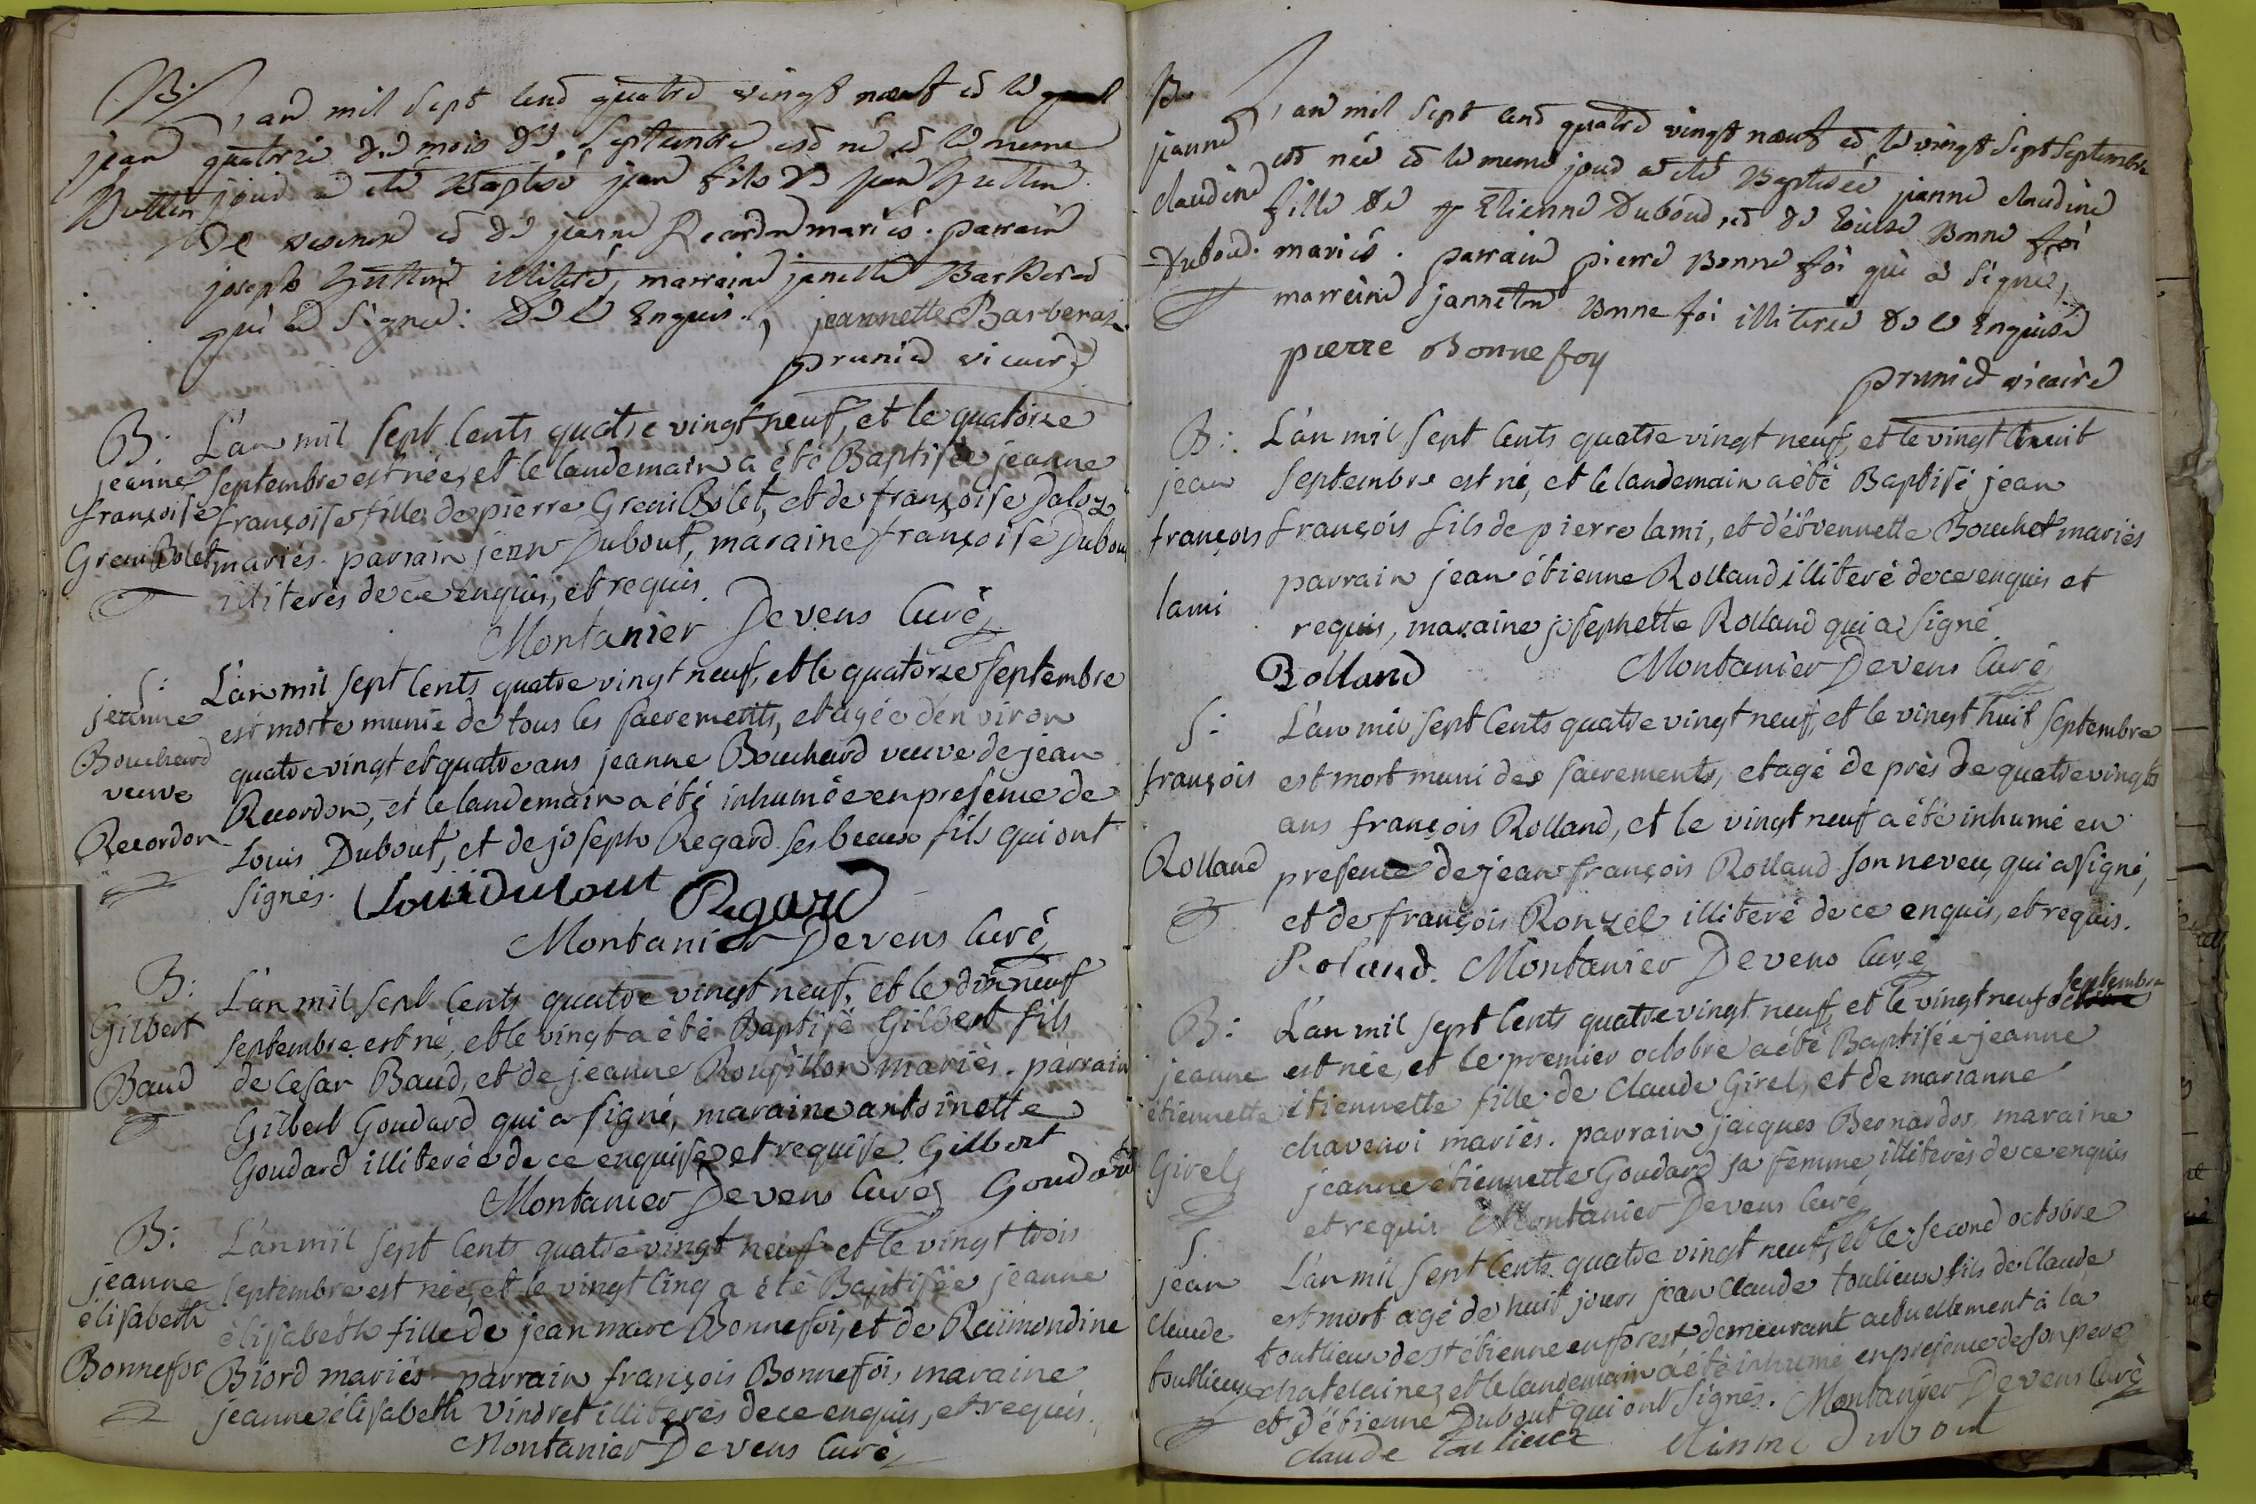 B: L'an mil sept cend quatre vingt nœuf et le
jean quatrze du mois de Septembre est né et le meme
Huttin jour a eté Baptisé jean fils de jean Huttin
de et de jeanne Recordon mariés. parrain
joseph Huttin illiteré, marraine janette Barberad
qui a signée: de ce Enquis. jeannette Barberas
prunied vicaire
B: L'an mil sept Cents quatre vingt neuf, et le quatorze
jeanne septembre est née, et le landemain a été Baptisée jeanne
françoise françoise fille de pierre GreniBolet, et de françoise Saloz
GreniBolet mariés. parrain jean Dubout, maraine françoise Dubout
illiterés de ce enquis, et requis.
Montanier Devens Curé
S: L'an mil sept Cents quatre vingt neuf, et le quatorze septembre
jeanne est morte munie de tous les sacrements, et agée d'environ
Bouchard quatre vingt et quatre ans jeanne Bouchard veuve de jean
veuve Recordon, et le landemain a été inhumée en presence de
Recordon Louis Dubout, et de joseph Regard ses beaux fils qui ont
signés. Loui Dubout Regard
Montanier Devens Curé
B: L'an mil sept Cents quatre vingt neuf, et le dix neuf
Gilbert septembre est né, et le vingt a été Baptisé Gilbert fils
Baud de Cesar Baud, et de jeanne Rousillon mariés. parrain
Gilbert Goudard qui a signé, maraine antoinette
Goudard illiterée de ce enquise, et requise. Gilbert
Montanier Devens Curé Goudard
B: L'an mil sept Cents quatre vingt neuf et le vingt trois
jeanne septembre est née, et le vingt Cinq a été Baptisée jeanne
élisabeth élisabeth fille de jean marc Bonnefoi, et de Raimondine
Bonnefoi Biord mariés. parrain françois Bonnefoi, maraine
jeanne élisabeth Vindret illiterés de ce enquis, et requis.
Montanier Devens Curé
B. L'an mil sept cend quatre vingt nœuf et le vingt sept septembre
jeanne est née et le meme jour a eté Baptisée jeanne claudine
claudine fille de Etienne Duboud, et de Bonne foi
Duboud. mariés. parrain pierre Bonne foi qui a signé,
marreine Bonne foi illiterée de ce Enquise
pierre Bonnefoy
prunied vicaire
B: L'an mil sept Cents quatre vingt neuf, et le vingt huit
jean septembre est né, et le landemain a été Baptisé jean
françois françois fils de pierre lami, et d'étiennette Bouchet mariés
lami parrain jean étienne Rolland illiteré de ce enquis et
requis, maraine josephette Rolland qui a signé.
Rolland Montanier Devens Curé
S: L'an mil sept Cents quatre vingt neuf, et le vingt huit septembre
françois est mort muni des sacrements, et agé de près de quatre vingts
ans françois Rolland, et le vingt neuf a été inhumé en
Rolland presence de jean françois Rolland son neveu, qui a signé,
et de françois Ronzel illiteré de ce enquis, et requis.
Roland. Montanier Devens Curé
septembre
B: L'an mil sept Cents quatre vingt neuf, et le vingt neuf octobre
jeanne est née, et le premier octobre a été Baptisée jeanne
étiennette étiennette fille de Claude Girel, et de marianne
chavenoi mariés. parrain jacques Bernardos, maraine
Girel jeanne étiennette Goudard sa femme, illiterés de ce enquis
et requis Montanier Devens Curé
S: L'an mil sept Cents quatre vingt neuf, et le second octobre
jean est mort agé de huit jours jean Claude toulieux fils de Claude
Claude toulieux de st étienne en forest demeurant actuellement à la
toulieux chatelaine, et le landemain a été inhumé en presence de son pere
et d'étienne Dubout qui ont signés. Montanier Devens Curé
Claude Toulieux Etienne Dubout